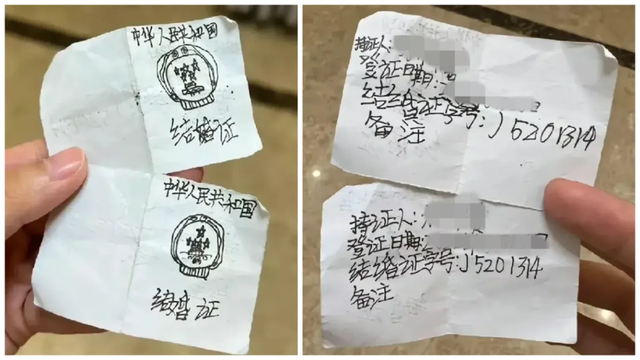 中华人民共和国
结婚证
中华人民共和国
结婚证
持证人:
登证日期:
结婚证字号:J5201314
备注
持证人:
登证日期:
结婚证字号:J5201314
备注